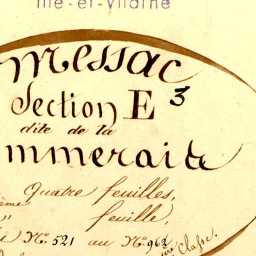 Ille-et-Vilaine
Messac
Section E 3
dite de la
mmeraie
Quatre feuilles,
feuille,
Nº. 521 au Nº. 962
Classe.